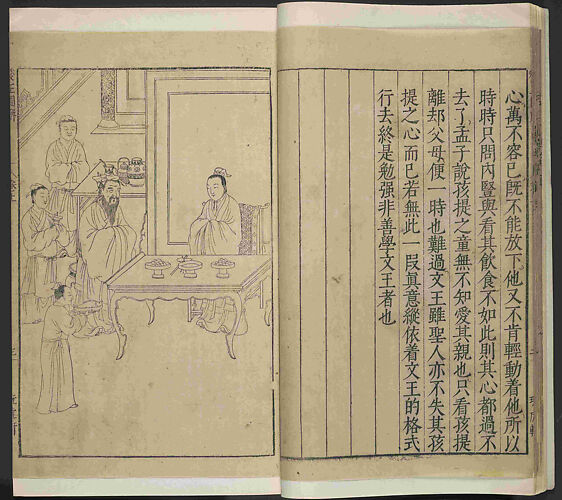 心萬不容已旣不能放下他又不肯輕動着他所以
時時只問内豎與看其飲食不如此則其心都過不
去了孟子說孩提之童無不知愛其親也只看孩提
離却父母便一時也難過文王雖聖人亦不失其孩
提之心而已若無此一段真意縱依着文王的格式
行去終是勉强非善學文王者也